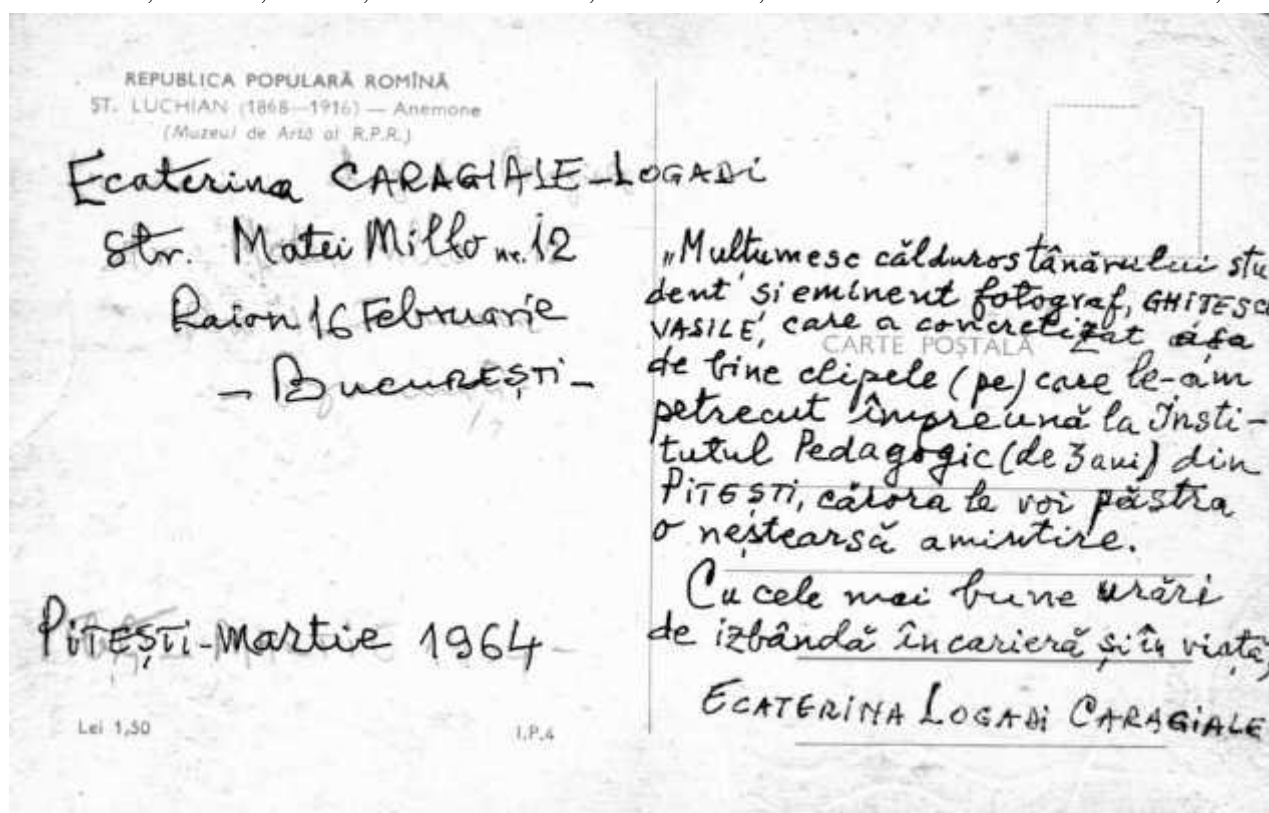 REPUBLICA POPULARĂ ROMÎNĂ
ȘT. LUCHIAN (1868—1916) — Anemone
(Muzeul de Artă al R.P.R.)
Ecaterina CARAGIALE-LOGADI
Str. Matei Millo nr. 12
Raion 16 Februarie
- BUCUREȘTI -
PITEȘTI - Martie 1964
Lei 1,50
I.P.4
„Mulțumesc călduros tânărului stu
dent și eminent fotograf, GHIȚESCU
VASILE, care a concretizat așa
CARTE POȘTALĂ
de bine clipele (pe) care le-am
petrecut împreună la Insti-
tutul Pedagogic (de 3 ani) din
PITEȘTI, cărora le voi păstra
o neștearsă amintire.
Cu cele mai bune urări
de izbândă în carieră și în viață,
ECATERINA LOGADI CARAGIALE